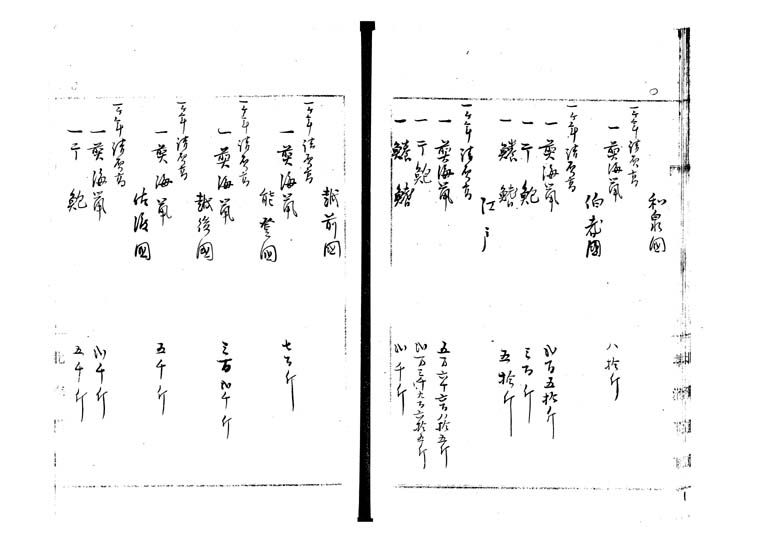 和泉國
一ケ年請高
一 煎海鼠 八拾斤
伯耆國
一ケ年請高
一 煎海鼠 弐百五拾斤
一 干鮑 三百斤
一 鱶鰭 五拾斤
江戸
一ケ年請高
一 煎海鼠 五万六千六百八拾五斤
一 干鮑 弐万三千六百六拾五斤
一 鱶鰭 弐千斤
越前國
一ケ年請高
一 煎海鼠 七百斤
能登國
一ケ年請高
一 煎海鼠 三万弐千斤
越後國
一ケ年請高
一 煎海鼠 五千斤
佐渡國
一ケ年請高
一 煎海鼠 弐千斤
一 干鮑 五千斤